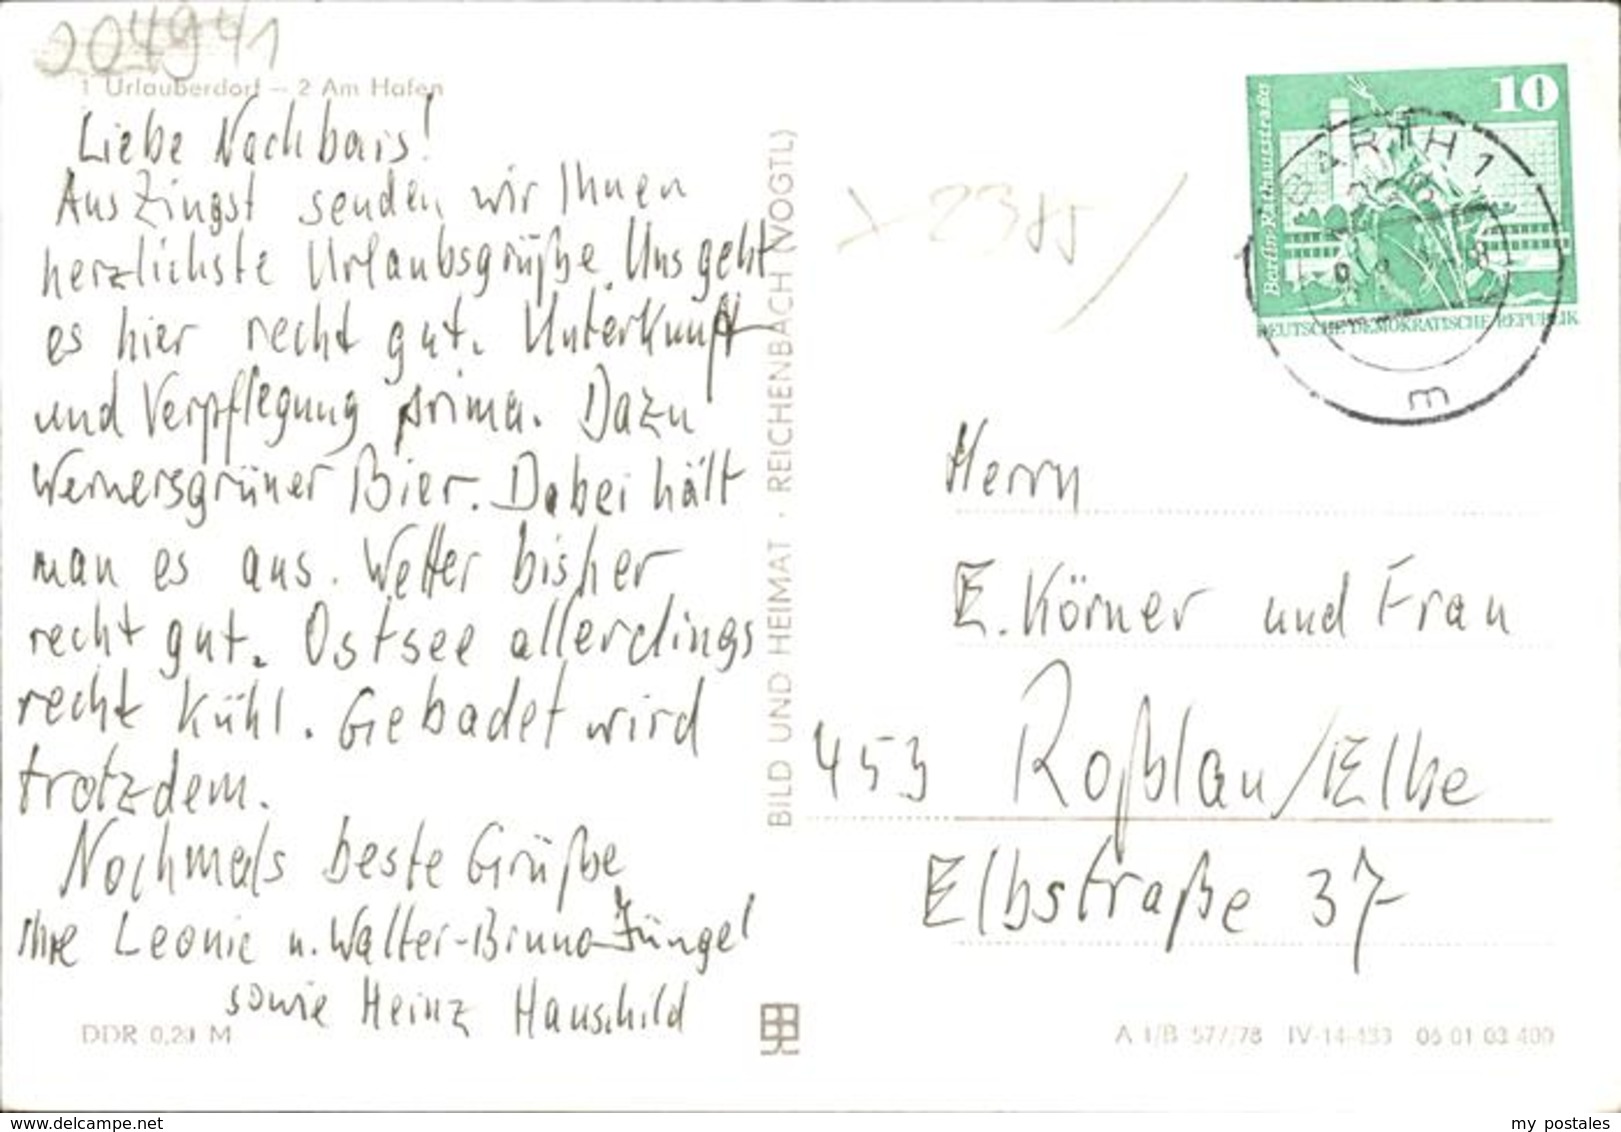 004941
1 Urlauberdorf – 2 Am Hafen
Liebe Nachbars!
Aus Zingst senden wir Ihnen
herzlichste Urlaubsgrüße. Uns geht
es hier recht gut. Unterkunft
und Verpflegung prima. Dazu
Wernersgrüner Bier. Dabei hält
man es aus. Wetter bisher
recht gut. Ostsee allerdings
recht kühl. Gebadet wird
trotzdem.
Nochmals beste Grüße
Ihre Leonie u. Walter-Bruno Jüngel
sowie Heinz Hauschild
DDR 0,20 M
BILD UND HEIMAT · REICHENBACH (VOGTL)
10
Berlin, Rathausstraße
DEUTSCHE DEMOKRATISCHE REPUBLIK
BARTH 1
m
Herrn
E. Körner und Frau
453 Roßlau/Elbe
Elbstraße 37
A 1/B 577/78 IV-14-483 06 01 03 400
www.delcampe.net
my_postales